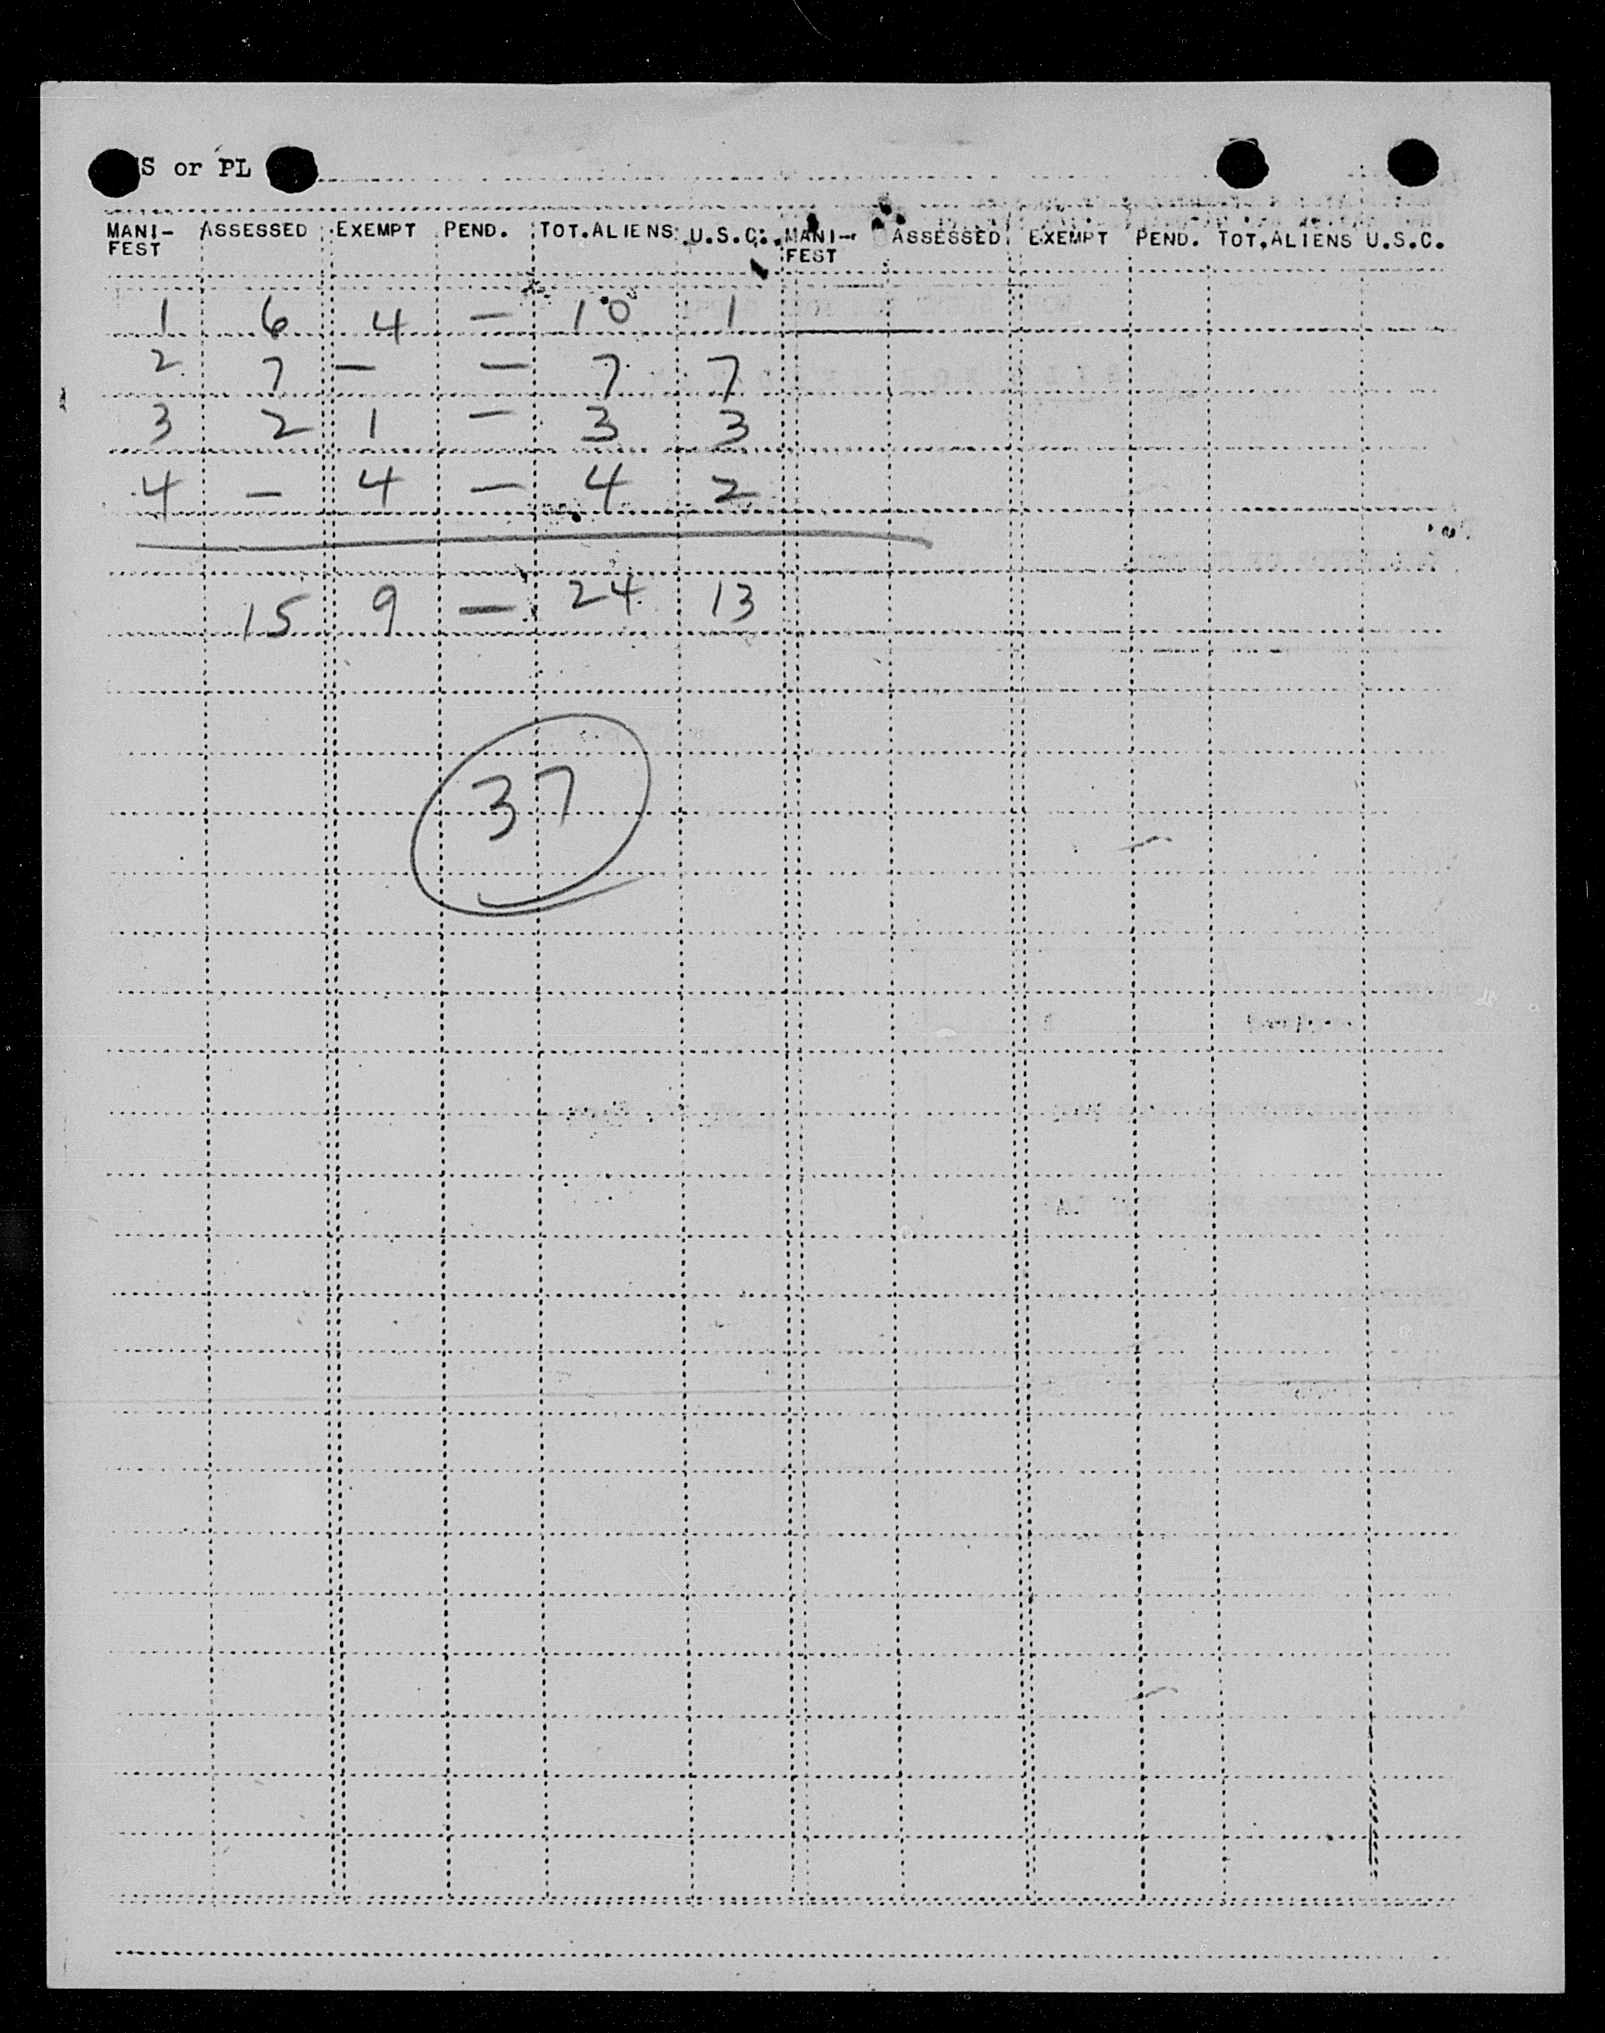 S or PL
MANI- ASSESSED EXEMPT PEND. TOT.ALIENS U.S.C. MANI- ASSESSED EXEMPT PEND. TOT.ALIENS U.S.C.
FEST FEST
1 6 4 — 10 1
2 7 — — 7 7
3 2 1 — 3 3
4 — 4 — 4 2
15 9 — 24 13
37